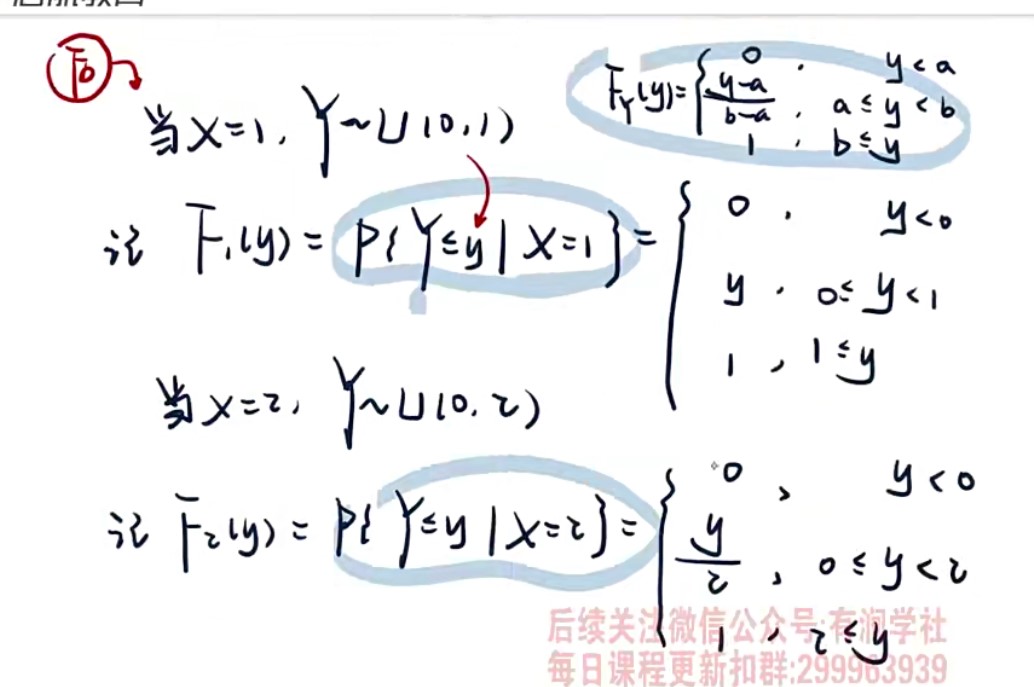 F₀
当X=1, Y~U(0,1)
F_Y(y)={ 0, y<a
(y-a)/(b-a), a≤y<b
1, b≤y
记 F₁(y)=P{Y≤y|X=1}={ 0, y<0
y, 0≤y<1
1, 1≤y
当X=2, Y~U(0,2)
记 F₂(y)=P{Y≤y|X=2}={ 0, y<0
y/2, 0≤y<2
1, 2≤y
后续关注微信公众号:有润学社
每日课程更新扣群:299963939